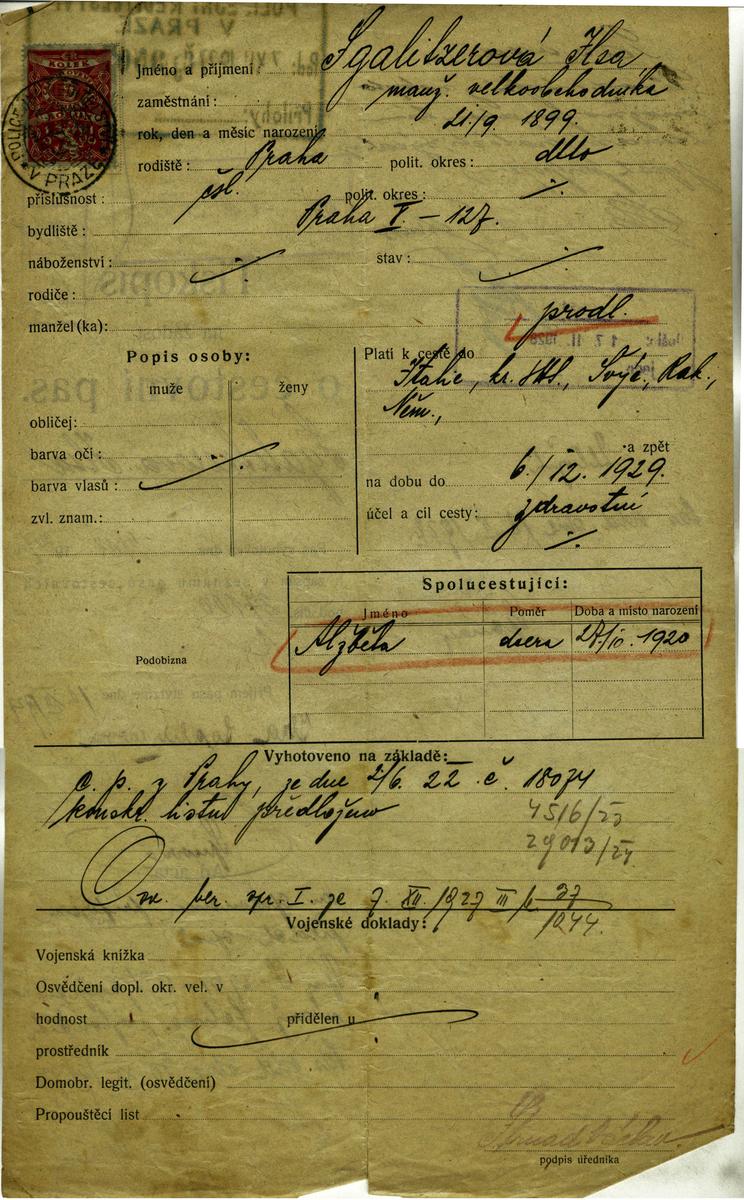 Jméno a příjmení: Sgalitzerová Ilsa
zaměstnání: manž. velkoobchodníka
rok, den a měsíc narození 21/9. 1899.
rodiště: Praha polit. okres: dtto
příslušnost: čsl. polit. okres: ./.
bydliště: Praha V – 127.
náboženství: stav:
rodiče: prodl.
manžel (ka):
Popis osoby:
muže ženy
obličej:
barva očí:
barva vlasů:
zvl. znam.:
Platí k cestě do
Italie, kr. SHS., Švýc., Rak.,
Něm.,
a zpět
na dobu do 6./12. 1929.
účel a cíl cesty: zdravotní
./.
Spolucestující:
Jméno Poměr Doba a místo narození
Alžběta dcera 1920
Podobizna
Vyhotoveno na základě:
c. p. z Prahy, ze dne 2/6. 22 č. 18074
konskr. listu předloženo
4516/23
29013/24
ber. spr. I. ze 7. XII. 1927 III
37
1044.
Vojenské doklady:
Vojenská knížka
Osvědčení dopl. okr. vel. v
hodnost přidělen u
prostředník
Domobr. legit. (osvědčení)
Propouštěcí list
podpis úředníka
V PRAZE